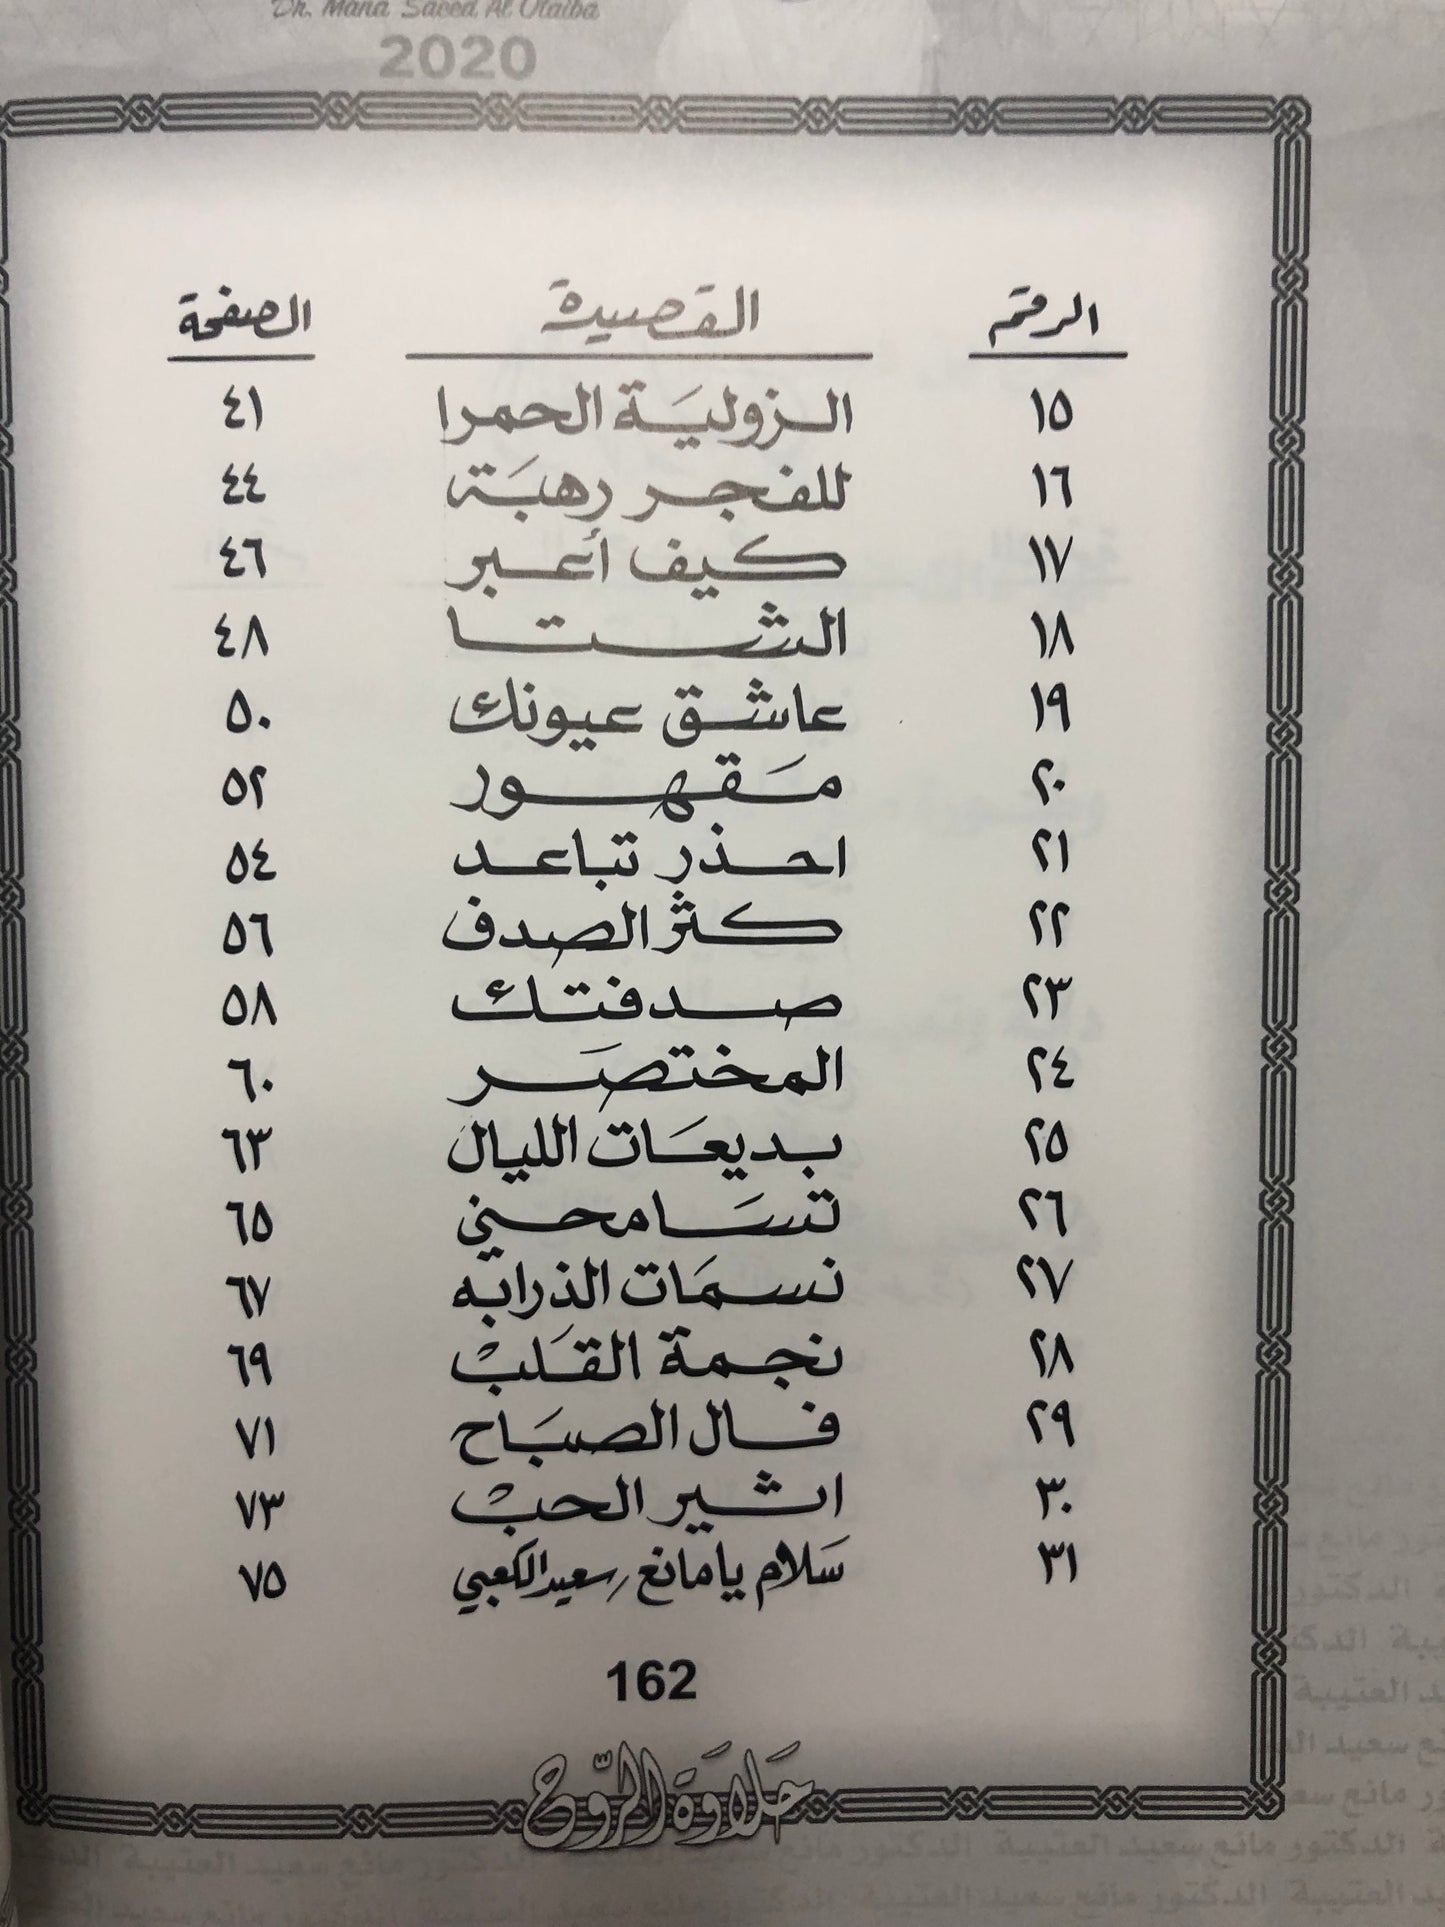 Dr. Mana Saeed Al Otaiba
2020
الرقم القصيدة الصفحة
١٥ الزولية الحمرا ٤١
١٦ للفجر رهبة ٤٤
١٧ كيف أعبر ٤٦
١٨ الشتا ٤٨
١٩ عاشق عيونك ٥٠
٢٠ مَقهور ٥٢
٢١ احذر تباعد ٥٤
٢٢ كثر الصدف ٥٦
٢٣ صدفتك ٥٨
٢٤ المختصَر ٦٠
٢٥ بديعَات الليال ٦٣
٢٦ تسَامحني ٦٥
٢٧ نسمَات الذرابه ٦٧
٢٨ نجمة القَلبْ ٦٩
٢٩ فال الصبَاح ٧١
٣٠ اشير الحبْ ٧٣
٣١ سَلام يا مانع / سعيد الكعبي ٧٥
162
حَلاوَة الرّوح